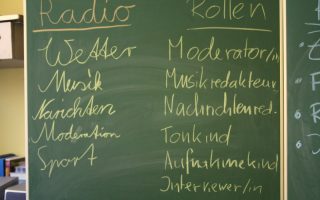 Radio
Wetter
Musik
Narichten
Moderation
Sport
Rollen
Moderator/in
Musikredakteur
Nachrichtenred.
Tonkind
Aufnahmekind
Interviewer/in